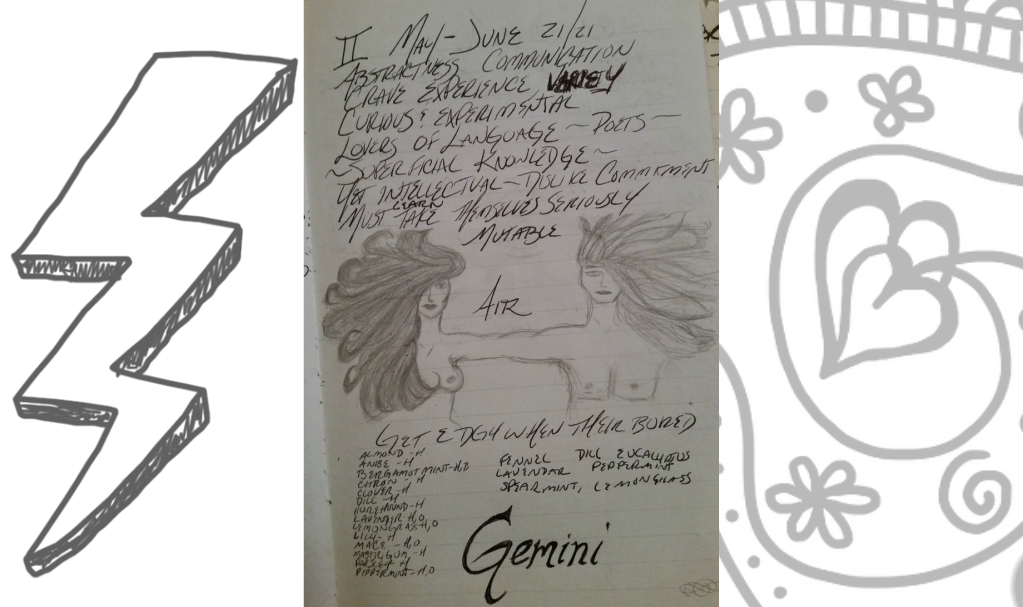 II May-June 21/21
Abstractness Communication
Crave Experience Variety
Curious & Experimental
Lovers of Language ~ Poets ~
~ Superficial Knowledge ~
Yet Intellectual - Dislike Commitment
Must Learn Take Themselves Seriously
Mutable
Air
Get Edgy when their bored
Almond - H
Anise - H
Bergamot Mint - H,O
Citron - H
Clover - H
Dill - H
Horehound - H
Lavender H,O
Lemongrass H,O
Lily - H
Mace - H,O
Mastic Gum - H
Parsley H
Peppermint - H,O
Fennel Dill Eucalyptus
Lavendar Peppermint
Spearmint, Lemongrass
Gemini